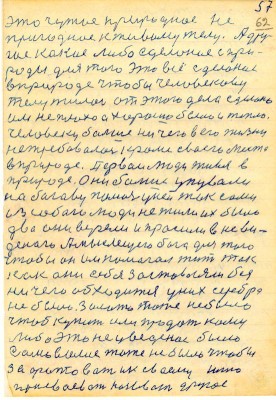 57
62
это чужое природное не
пригодное к живому телу. А дру-
гие какие либо сделаные с при-
роды для того это всё сделано
в природе чтобы человекову
телу жилося от этого дела сделано
им неплохо а хорошо было и тепло.
Человеку больше ничего в его жизни
не требовалось кроме своего места
в природе. Первые люди жили в
природе. Они больше упували
на богову помощь у них так сами
из собою люди не жили их было
два они верили и просили в неви-
димого бога для того
чтобы он им помогал жить так
как они себя заставляли без
ничего обходится у них серебра
не было. Золота тоже не было
чтоб купит или продат кому
либо Это не уведеное было
Само тоже не было чтобы
за своему
присваеват